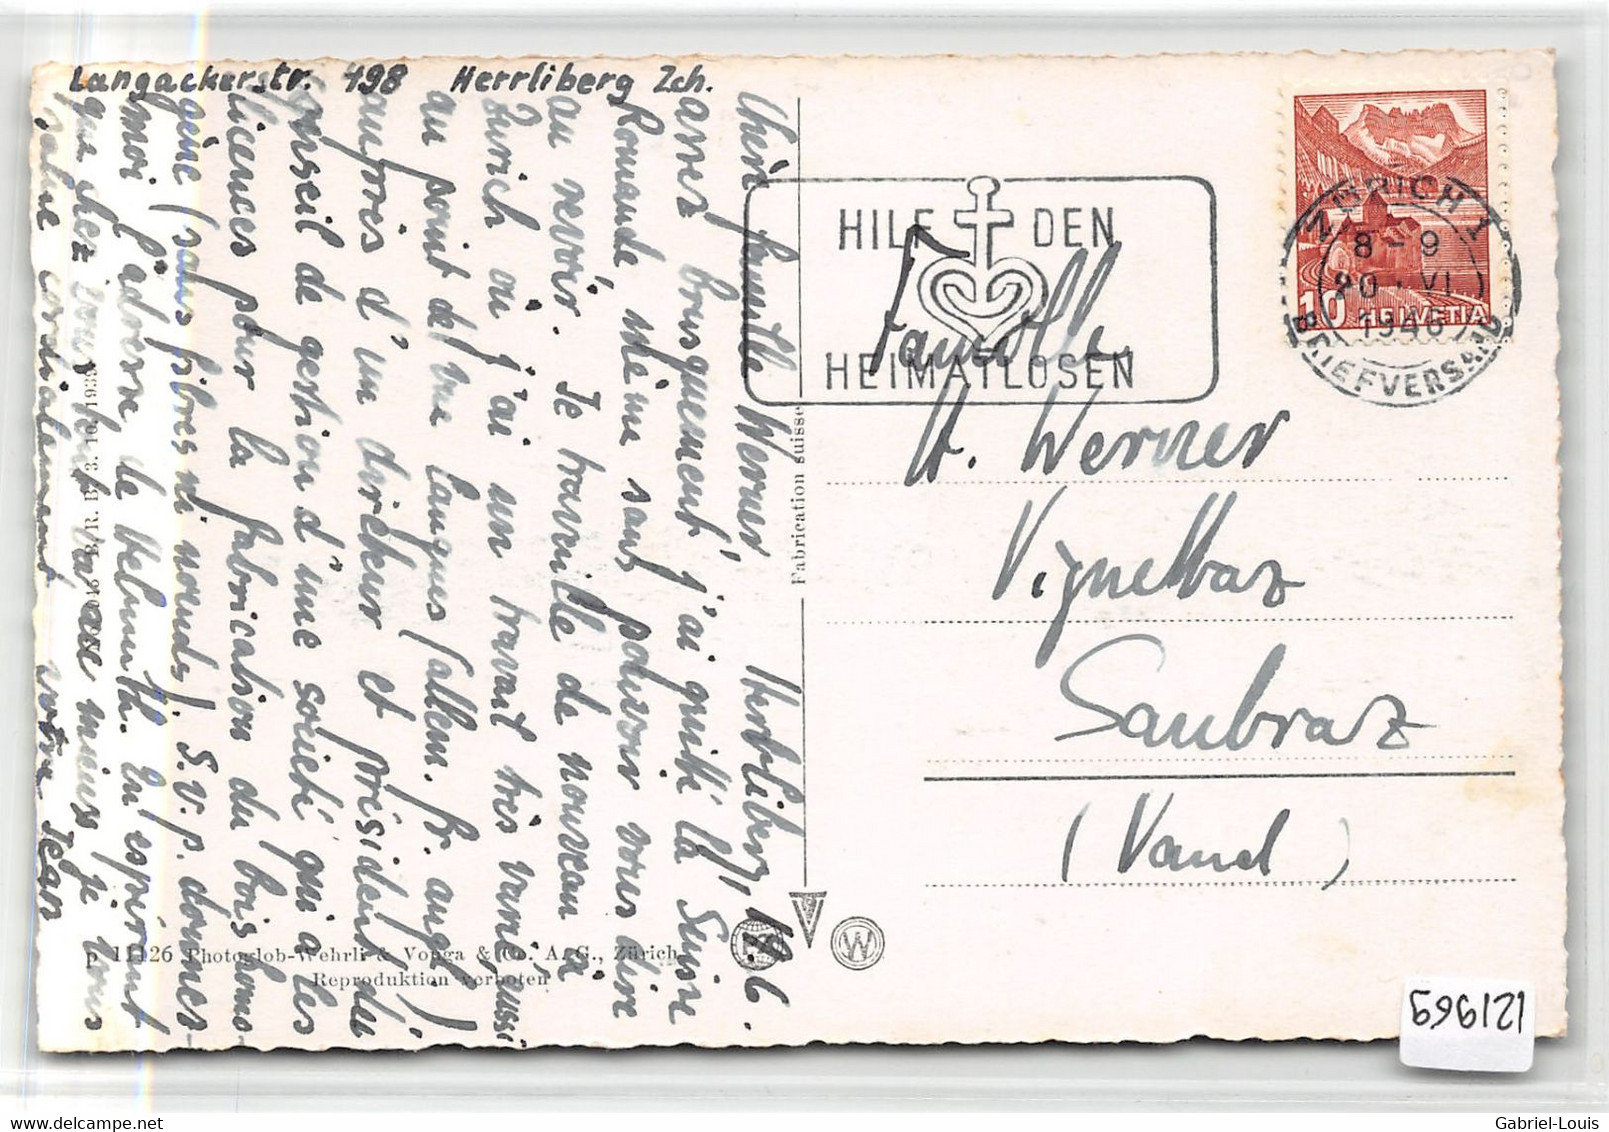 Langackerstr. 498 Herrliberg Zch.
Herrliberg, 19.6.
Chère famille Werner
assez brusquement j'ai quitté la Suisse
Romande même sans pouvoir vous dire
au revoir. Je travaille de nouveau à
Zurich où j'ai un travail très varié aussi
au point de vue langues (allem. fr. angl.)
auprès d'un directeur et président du
Conseil de gestion d'une société qui a les
licences pour la fabrication du bois homo-
gène (sans fibres ni nœuds). S.v.p. donnez-
moi l'adresse de Helmuth. En espérant
que chez vous tout va assez mieux je vous
salue cordialement votre Jean
HILF DEN
HEIMATLOSEN
ZÜRICH 1
8-9
20.VI.
1946
BRIEFVERSAND
10 HELVETIA
Famille
A. Werner
Vignettaz
Saubraz
(Vaud)
Fabrication suisse
B/R. B. 3. 10. 1938
p 11126 Photoglob-Wehrli & Vouga & Co. A. G., Zürich
Reproduktion verboten
W
1219659
Gabriel-Louis